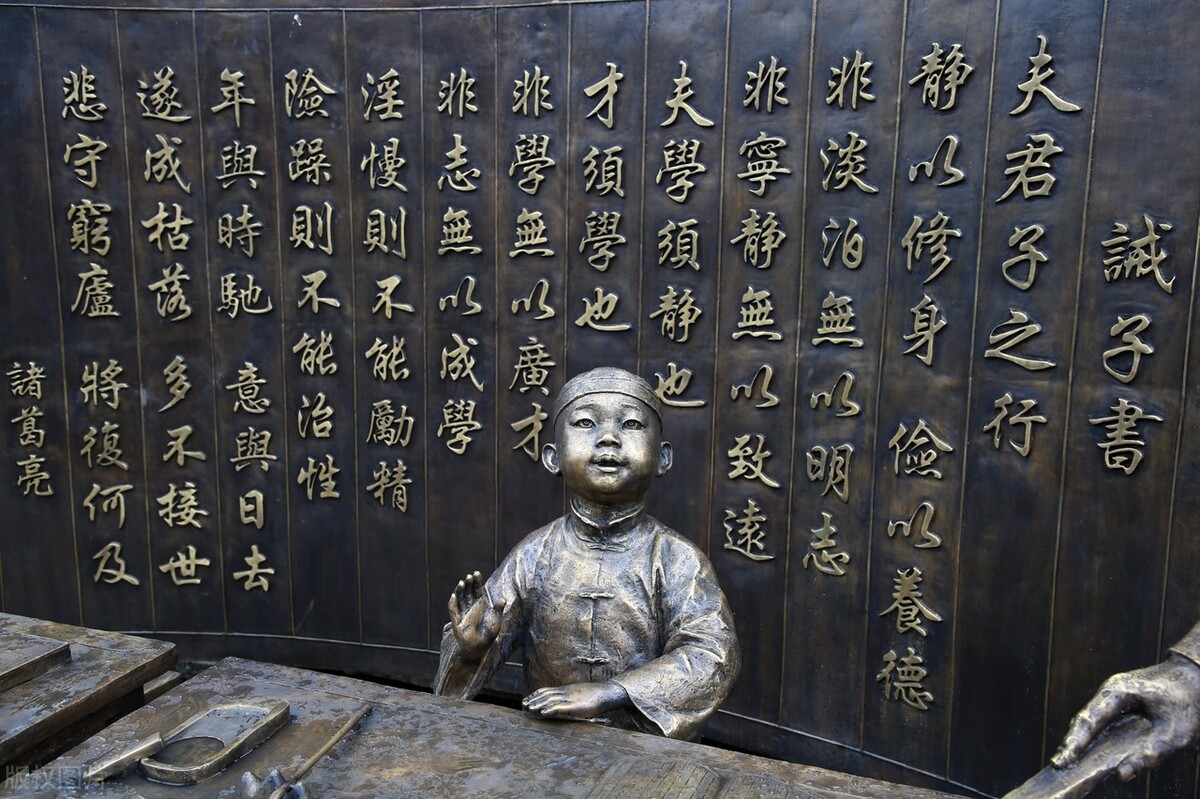 誡子書
夫君子之行
静以修身 儉以養德
非淡泊無以明志
非寧静無以致遠
夫學須静也
才須學也
非學無以廣才
非志無以成學
淫慢則不能勵精
險躁則不能治性
年與時馳 意與日去
遂成枯落 多不接世
悲守窮廬 將復何及
諸葛亮
版权图库